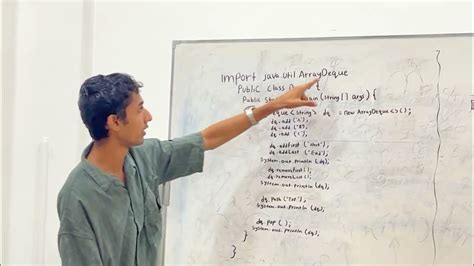 Import java.util.ArrayDeque
Public class {
Public (String[] args) {
Deque <String> dq = new ArrayDeque<>();
dq.add ("A");
dq.add ("B");
dq.add ("C");
dq.addFirst (
dq.addLast ("End");
System.out.println (dq);
dq.removeFirst();
dq.removeLast();
System.out.println (dq);
dq.push ("Top");
System.out.println (dq);
dq.pop ( );
System.out.println (dq);
}
}